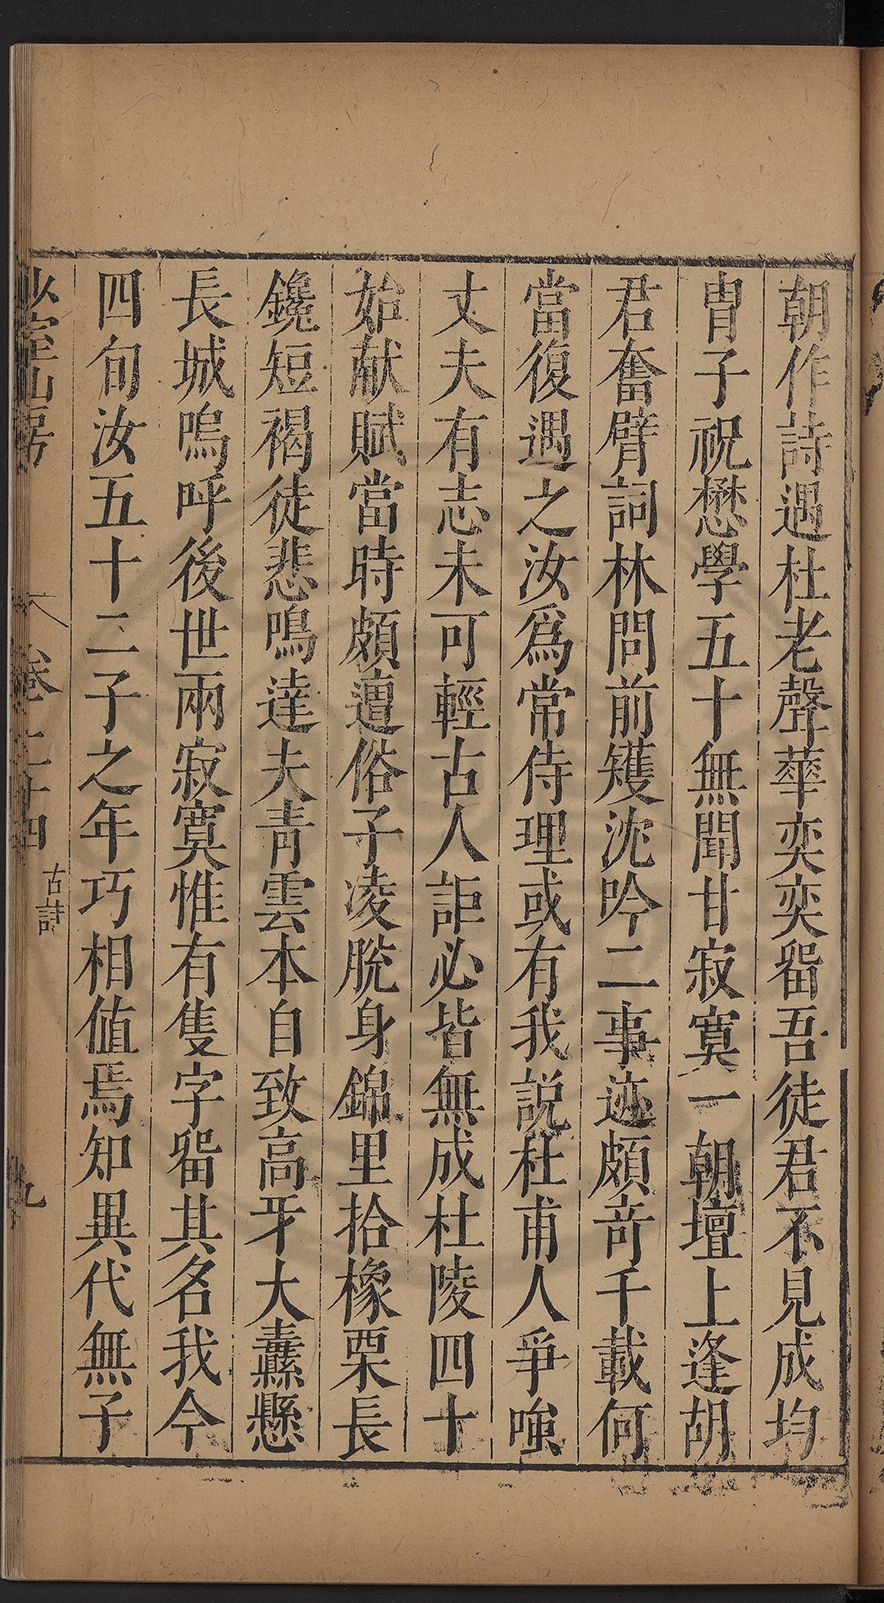 朝作詩遇杜老聲華奕奕畱吾徒君不見成均
胄子祝懋學五十無聞甘寂寞一朝壇上逢胡
君奮臂詞林問前矱沈吟二事迹頗竒千載何
當復遇之汝爲常侍理或有我説杜甫人爭嗤
丈夫有志未可輕古人詎必皆無成杜陵四十
始献賦當時頗遭俗子凌脫身錦里拾橡栗長
鑱短褐徒悲鳴達夫青雲本自致高牙大纛懸
長城嗚呼後世兩寂寞惟有隻字畱其名我今
四旬汝五十二子之年巧相値焉知異代無子
卷二十四
古詩
九